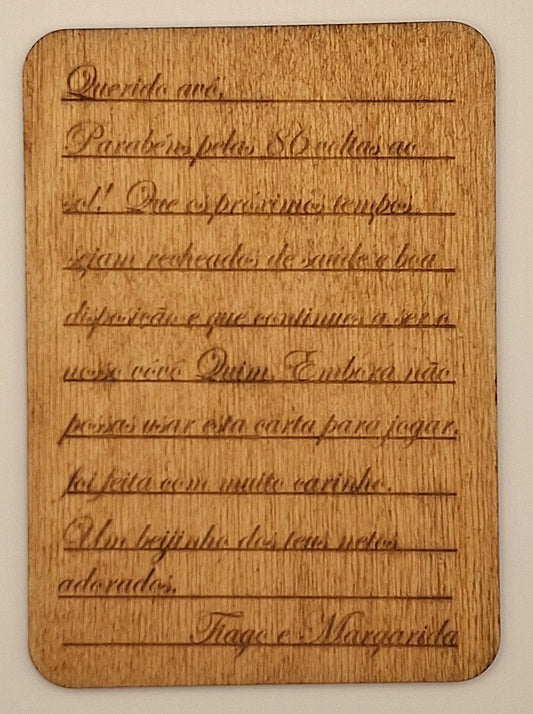 Querido avô,
Parabéns pelas 86 voltas ao
sol! Que os próximos tempos
sejam recheados de saúde e boa
disposição e que continues a ser o
nosso vôvô Quim. Embora não
possas usar esta carta para jogar,
foi feita com muito carinho.
Um beijinho dos teus netos
adorados.
Tiago e Margarida